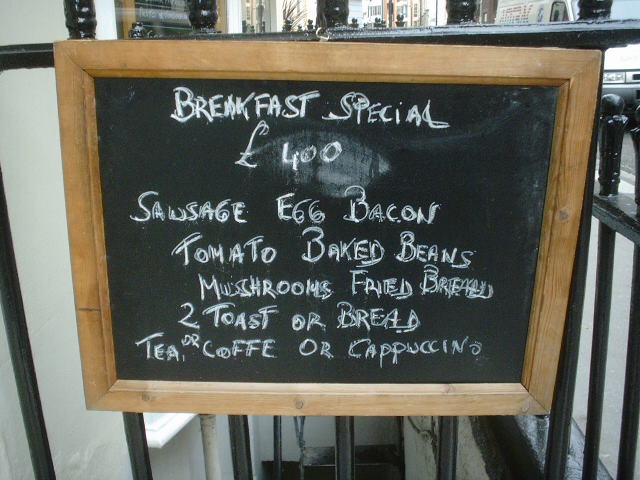 BREAKFAST SPECIAL
£ 400
SAUSAGE EGG BACON
TOMATO BAKED BEANS
MUSHROOMS FRIED BREAD
2 TOAST OR BREAD
TEA, OR COFFE OR CAPPUCCINO